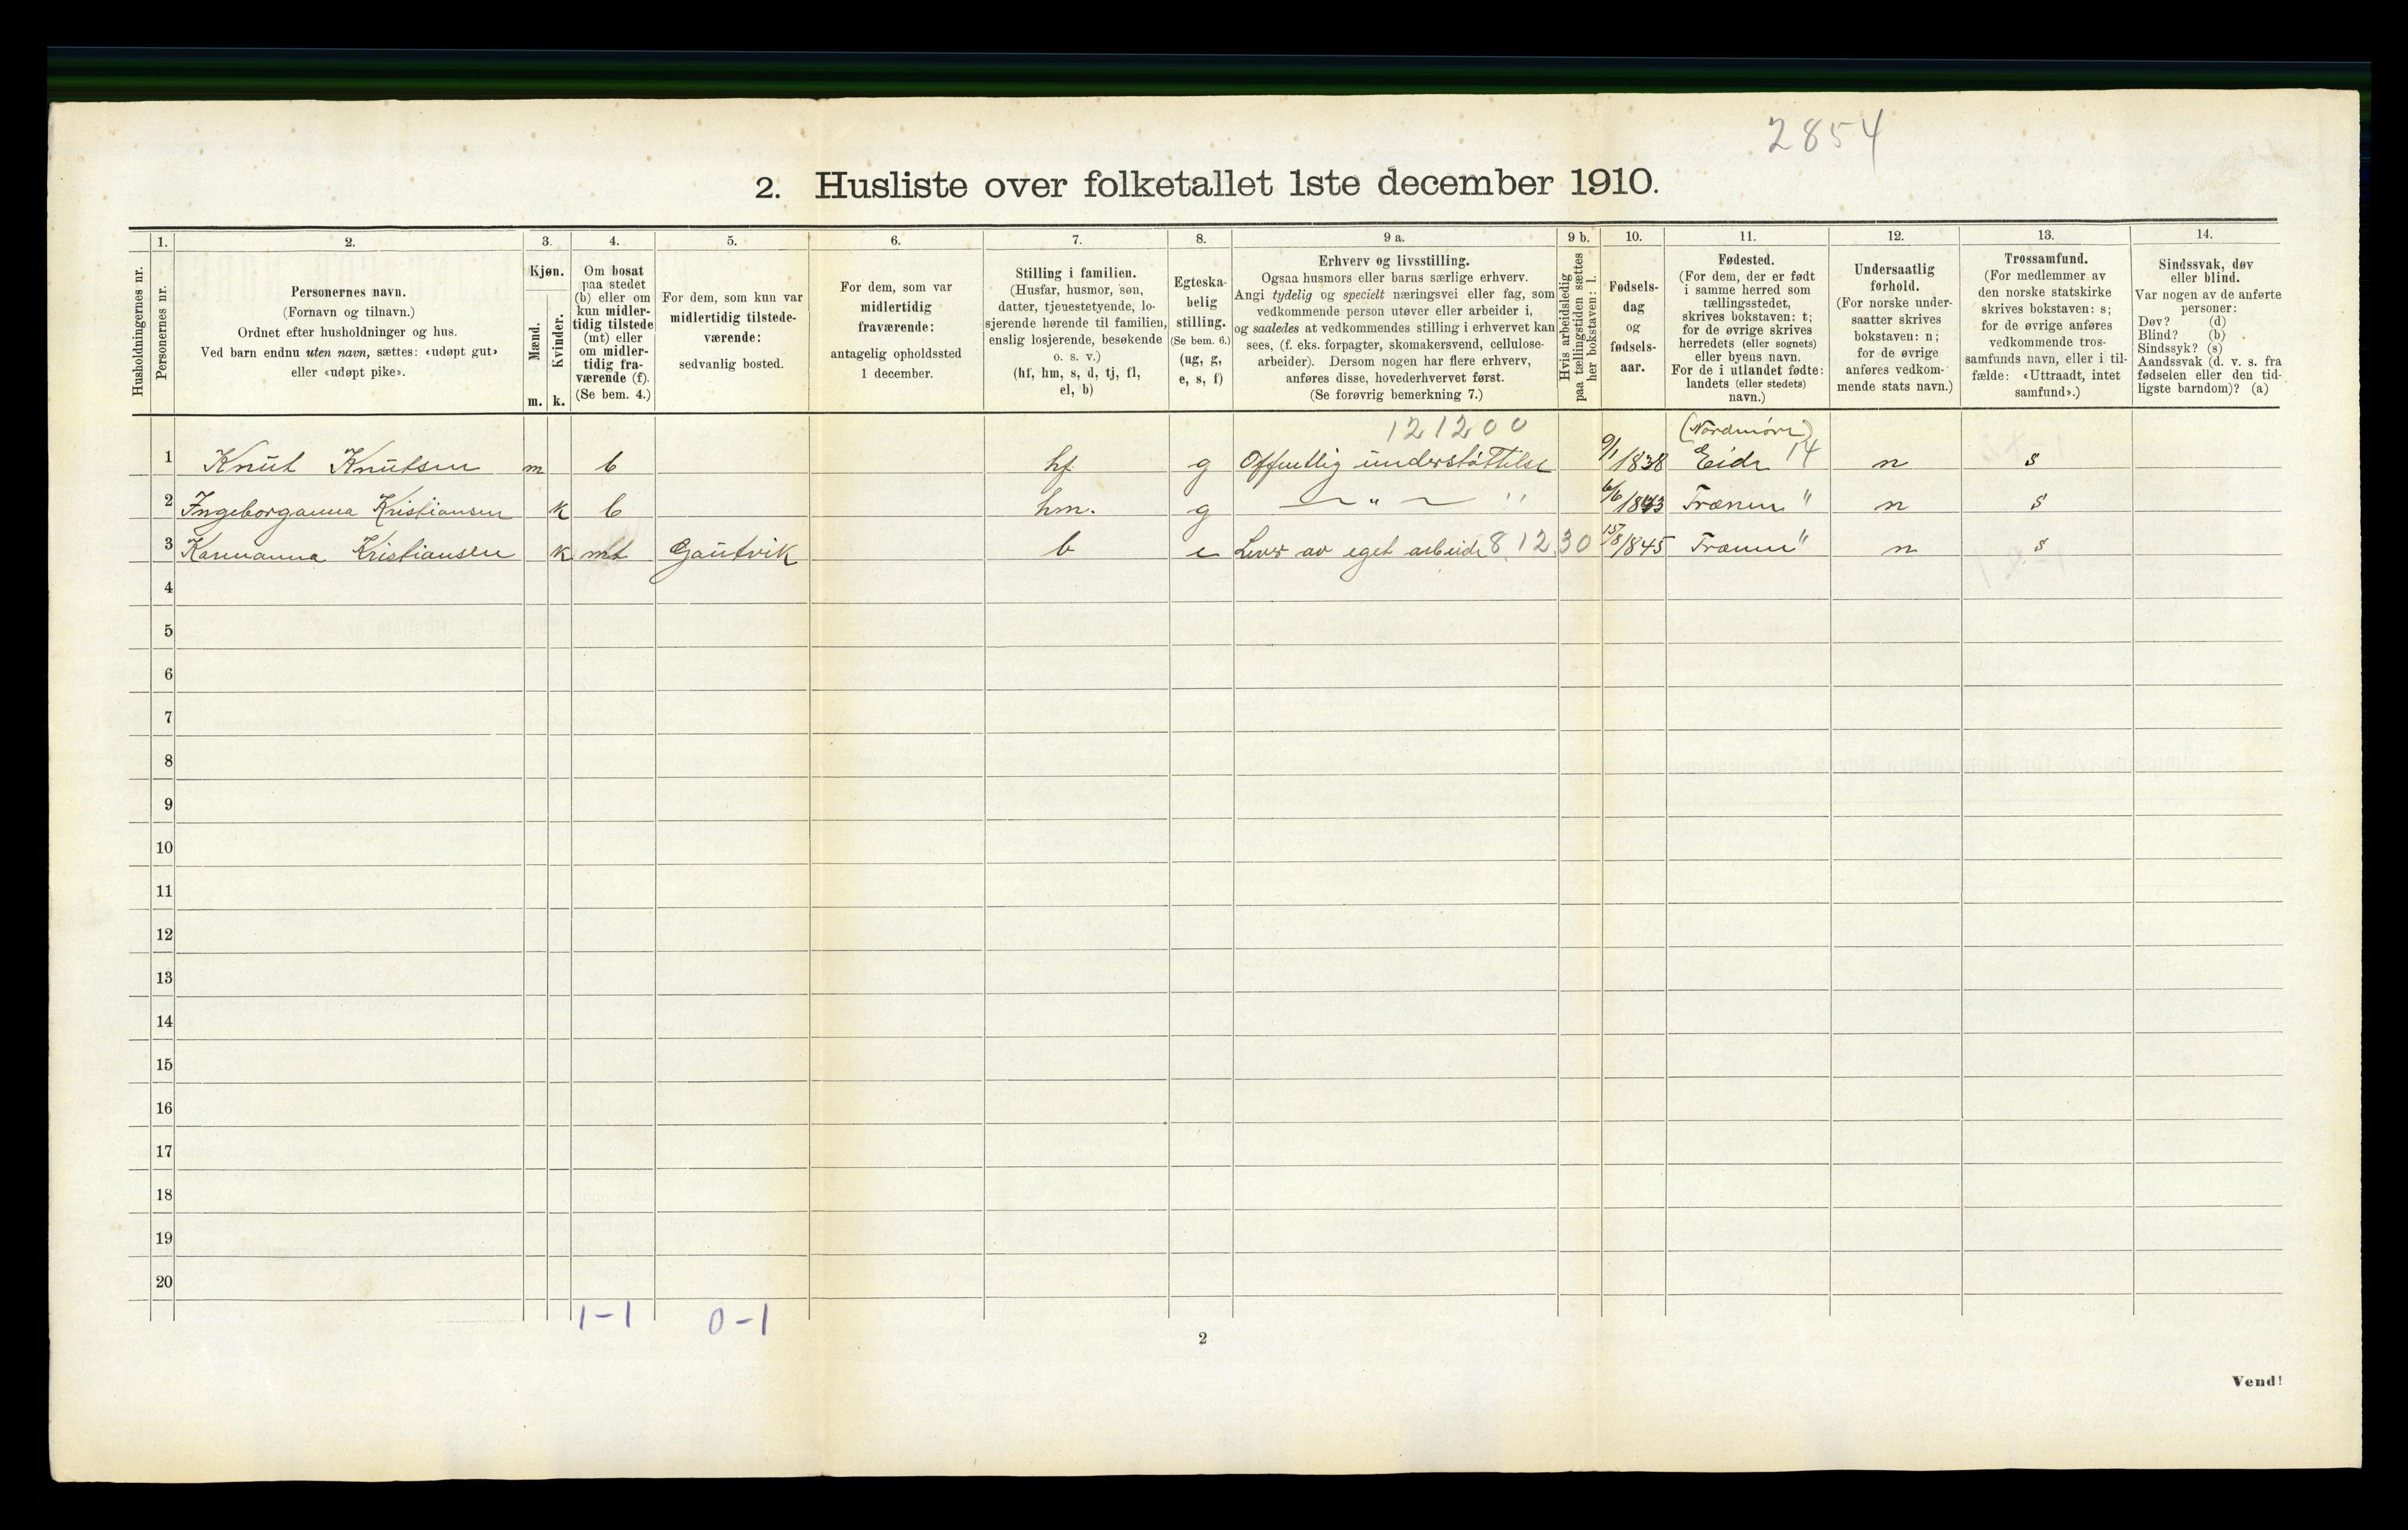 2854
2. Husliste over folketallet 1ste december 1910.
Husholdningernes nr.
1. Personernes nr.
2. Personernes navn.
(Fornavn og tilnavn.)
Ordnet efter husholdninger og hus.
Ved barn endnu uten navn, sættes: «udøpt gut»
eller «udøpt pike».
3. Kjøn.
Mænd. m.
Kvinder. k.
4. Om bosat
paa stedet
(b) eller om
kun midler-
tidig tilstede
(mt) eller
om midler-
tidig fra-
værende (f).
(Se bem. 4.)
5. For dem, som kun var
midlertidig tilstede-
værende:
sedvanlig bosted.
6. For dem, som var
midlertidig
fraværende:
antagelig opholdssted
1 december.
7. Stilling i familien.
(Husfar, husmor, søn,
datter, tjenestetyende, lo-
sjerende hørende til familien,
enslig losjerende, besøkende
o. s. v.)
(hf, hm, s, d, tj, fl,
el, b)
8. Egteska-
belig
stilling.
(Se bem. 6.)
(ug, g,
e, s, f)
9 a. Erhverv og livsstilling.
Ogsaa husmors eller barns særlige erhverv.
Angi tydelig og specielt næringsvei eller fag, som
vedkommende person utøver eller arbeider i,
og saaledes at vedkommendes stilling i erhvervet kan
sees, (f. eks. forpagter, skomakersvend, cellulose-
arbeider). Dersom nogen har flere erhverv,
anføres disse, hovederhvervet først.
(Se forøvrig bemerkning 7.)
9 b. Hvis arbeidsledig
paa tællingstiden sættes
her bokstaven: l.
10. Fødsels-
dag
og
fødsels-
aar.
11. Fødested.
(For dem, der er født
i samme herred som
tællingsstedet,
skrives bokstaven: t;
for de øvrige skrives
herredets (eller sognets)
eller byens navn.
For de i utlandet fødte:
landets (eller stedets)
navn.)
12. Undersaatlig
forhold.
(For norske under-
saatter skrives
bokstaven: n;
for de øvrige
anføres vedkom-
mende stats navn.)
13. Trossamfund.
(For medlemmer av
den norske statskirke
skrives bokstaven: s;
for de øvrige anføres
vedkommende tros-
samfunds navn, eller i til-
fælde: «Uttraadt, intet
samfund».)
14. Sindssvak, døv
eller blind.
Var nogen av de anførte
personer:
Døv? (d)
Blind? (b)
Sindssyk? (s)
Aandssvak (d. v. s. fra
fødselen eller den tid-
ligste barndom)? (a)
121200 (Nordmøre)
1 Knut Knutsen m b hf g Offentlig understøttelse 9/1 1838 Eide 14 n s
2 Ingeborganna Kristiansen k b hm. g — " — " 6/6 1843 Frænen " n s
3 Karenanna Kristiansen k mt Gautvik b e Lever av eget arbeide 8.12.30 15/8 1845 Frænen " n s
4
5
6
7
8
9
10
11
12
13
14
15
16
17
18
19
20
1-1 0-1
2
Vend!